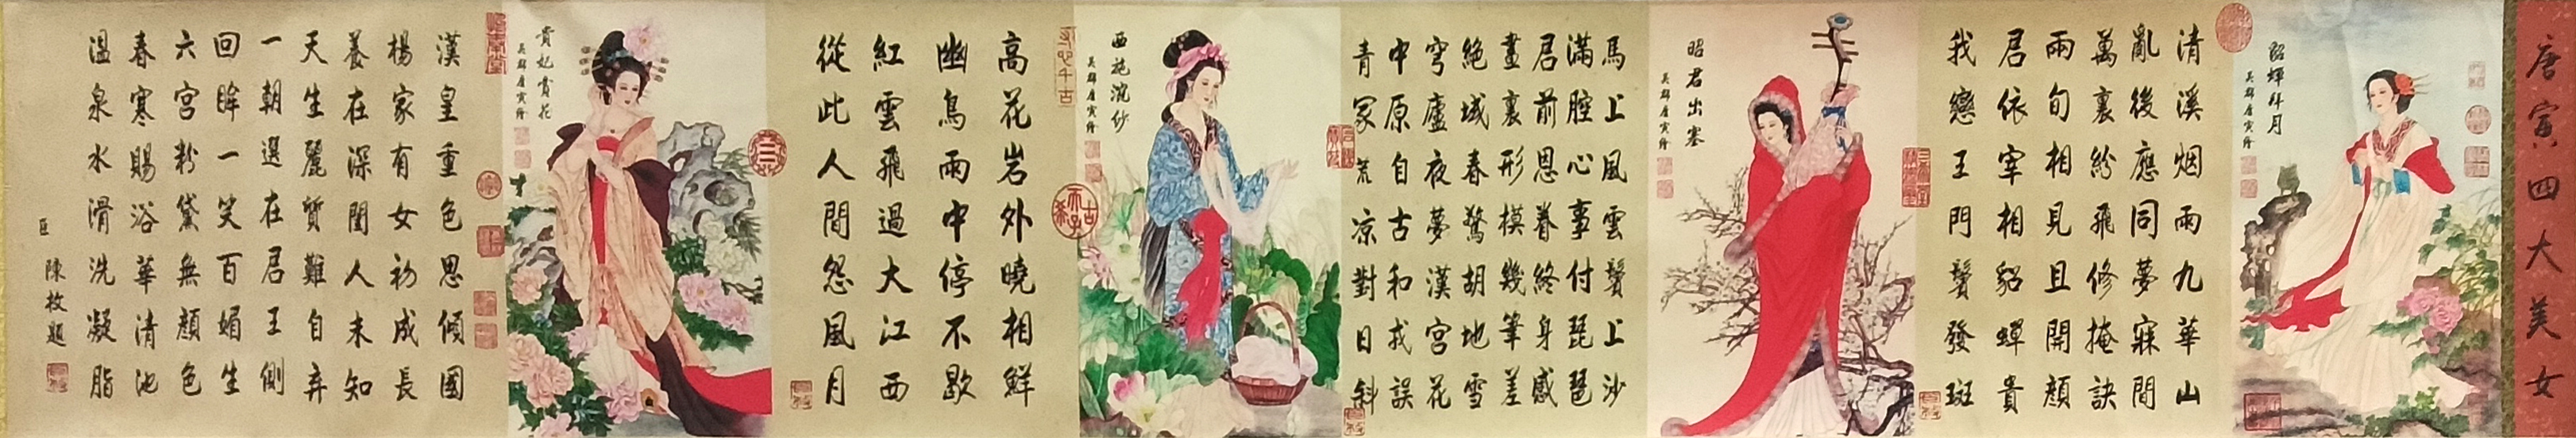 唐寅四大美女
貂蟬拜月
吴郡唐寅绘
清溪烟雨九華山
亂後應同夢寐間
萬裏紛飛修掩訣
兩旬相見且開顔
君依宰相貂蟬貴
我戀王門鬢發斑
昭君出塞
吴郡唐寅绘
馬上風雲鬢上沙
滿腔心事付琵琶
君前恩眷終身感
畫裏形模幾筆差
絶域春驚胡地雪
穹廬夜夢漢宮花
中原自古和戎誤
青冢荒凉對日斜
西施浣紗
吴郡唐寅绘
高花岩外曉相鮮
幽鳥雨中停不歇
紅雲飛過大江西
從此人間怨風月
貴妃賞花
吴郡唐寅绘
漢皇重色思傾國
楊家有女初成長
養在深閨人未知
天生麗質難自弃
一朝選在君王側
回眸一笑百媚生
六宮粉黛無顔色
春寒賜浴華清池
溫泉水滑洗凝脂
臣 陳枚題